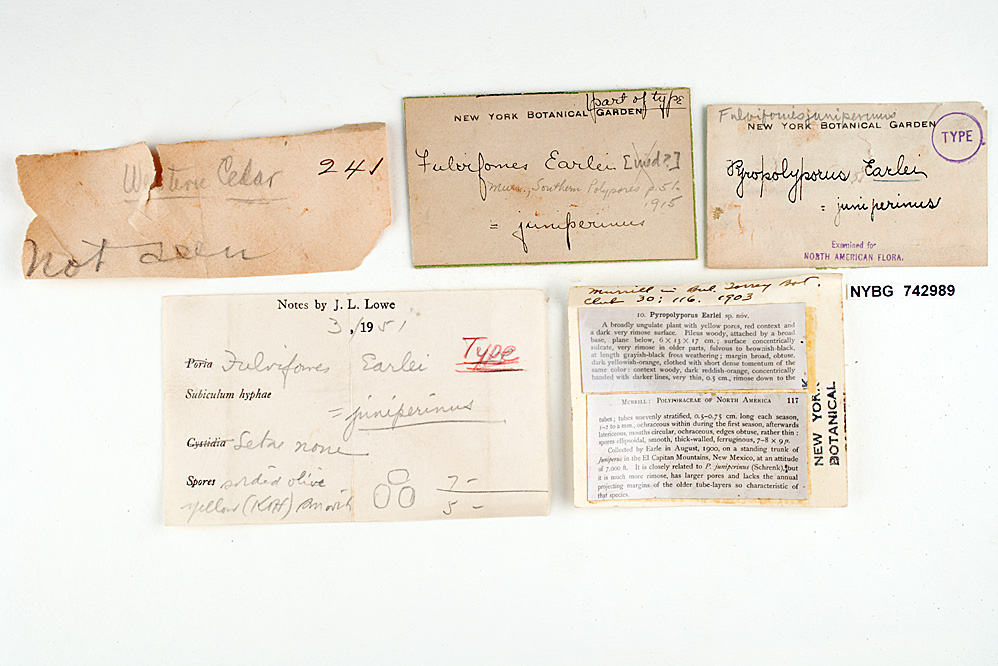 Western Cedar 241
Not seen
part of type
NEW YORK BOTANICAL GARDEN
Fulvifomes Earlei [nod?]
Murr., Southern Polypores p. 51.
1915
= juniperinus
Fulvifomes juniperinus
NEW YORK BOTANICAL GARDEN
TYPE
Pyropolyporus Earlei
= juniperinus
Examined for
NORTH AMERICAN FLORA.
Notes by J. L. Lowe
3/, 1951
Poria Fulvifomes Earlei Type
Subiculum hyphae
= juniperinus
Cystidia Setae none
Spores sordid olive 7-
yellow (KOH) 5-
Murrill in Bul. Torrey Bot.
Club 30: 116. 1903
10. Pyropolyporus Earlei sp. nov.
A broadly ungulate plant with yellow pores, red context and
a dark very rimose surface. Pileus woody, attached by a broad
base, plane below, 6 × 13 × 17 cm.; surface concentrically
sulcate, very rimose in older parts, fulvous to brownish-black,
at length grayish-black from weathering; margin broad, obtuse,
dark yellowish-orange, clothed with short dense tomentum of the
same color: context woody, dark reddish-orange, concentrically
banded with darker lines, very thin, 0.5 cm., rimose down to the
MURRILL: POLYPORACEAE OF NORTH AMERICA 117
tubes; tubes unevenly stratified, 0.5–0.75 cm. long each season,
1–2 to a mm., ochraceous within during the first season, afterwards
latericeous, mouths circular, ochraceous, edges obtuse, rather thin;
spores ellipsoidal, smooth, thick-walled, ferruginous, 7–8 × 9 µ.
Collected by Earle in August, 1900, on a standing trunk of
Juniperus in the El Capitan Mountains, New Mexico, at an attitude
of 7,000 ft. It is closely related to P. juniperinus (Schrenk), but
it is much more rimose, has larger pores and lacks the annual
projecting margins of the older tube-layers so characteristic of
that species.
NEW YORK
BOTANICAL
NYBG 742989